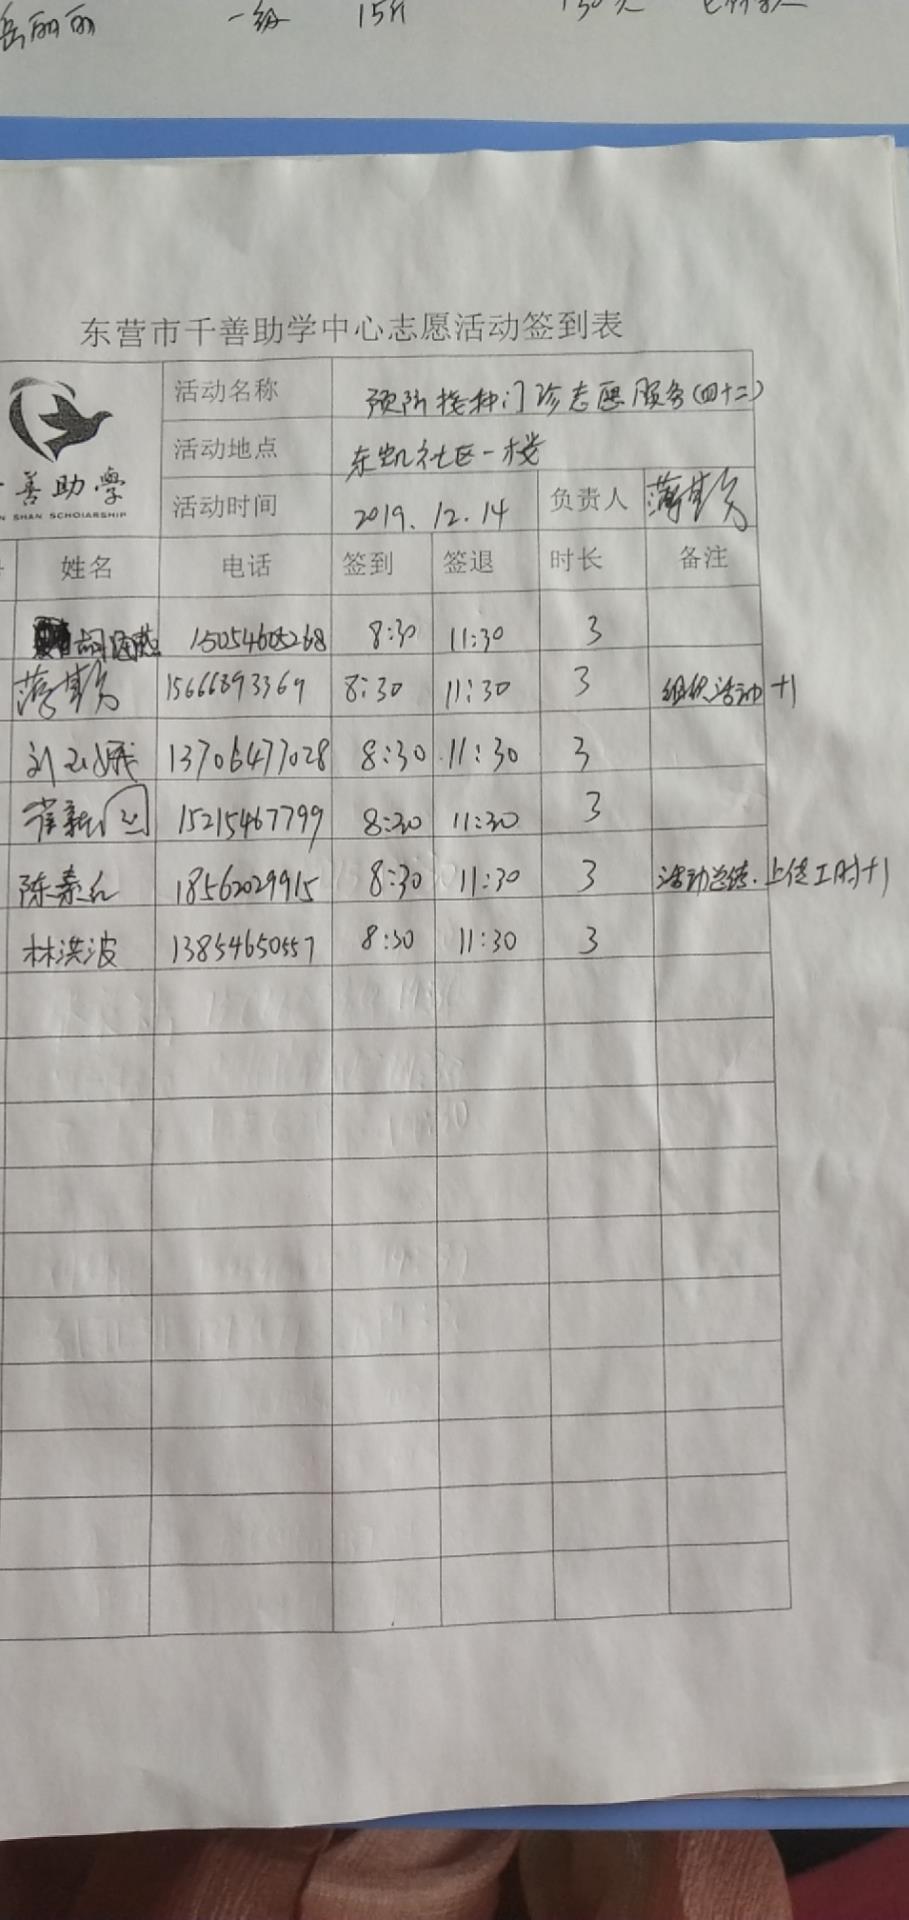 岳丽丽 一级 15斤
东营市千善助学中心志愿活动签到表
善助學
N SHAN SCHOLARSHIP
活动名称 预防接种门诊志愿服务(四十二)
活动地点 东凯社区一楼
活动时间 2019.12.14 负责人 薄其
姓名 电话 签到 签退 时长 备注
胡海燕 15054605268 8:30 11:30 3
薄其 15666893369 8:30 11:30 3 组织活动 +1
刘玉娥 13706477028 8:30 11:30 3
崔新 15215467799 8:30 11:30 3
陈素红 18562029915 8:30 11:30 3 活动总结.上传工时+1
林洪波 13854650557 8:30 11:30 3